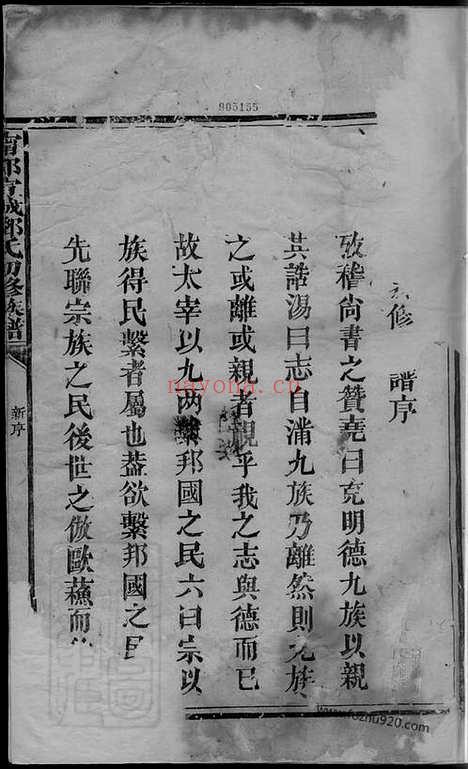 905155
修譜序
攷稽尚書之贊堯曰克明德九族以親
其誥湯曰志自滿九族乃離然則九族
之或離或親者視乎我之志與德而已
故太宰以九两繫邦國之民六曰宗以
族得民繫者屬也葢欲繫邦國之民
先聯宗族之民後世之倣歐蘓而
氏初修族譜
新序
nayona.cn
www.fozhu920.com